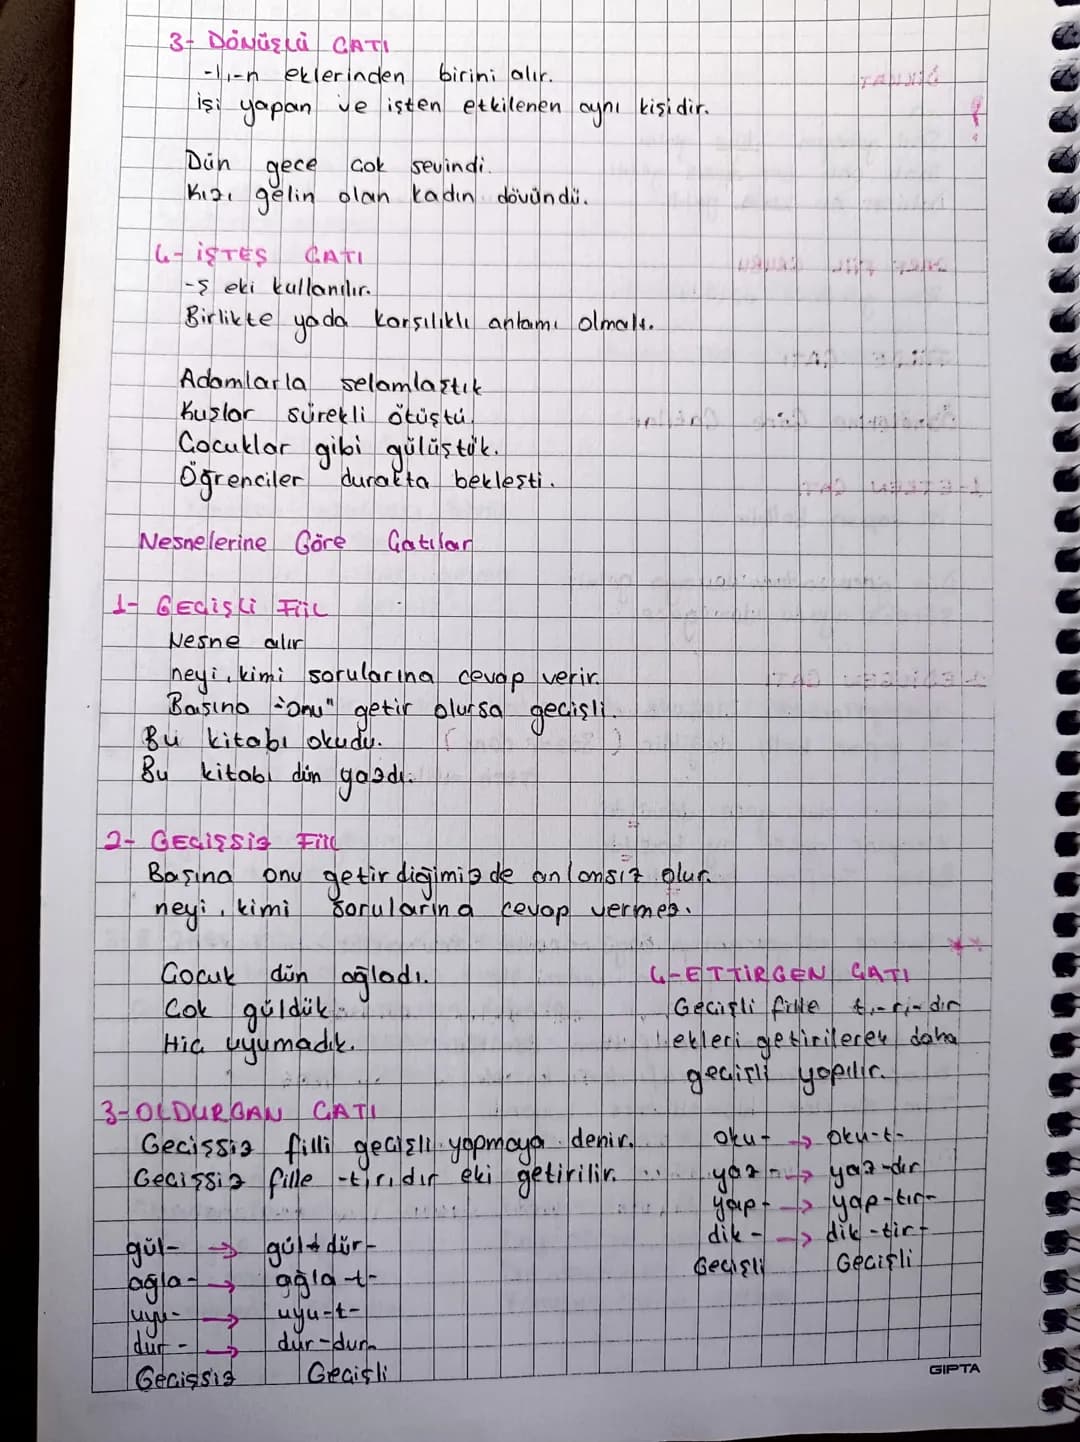 3- DÖNÜŞLÜ ÇATI
-l,-n eklerinden birini alır.
işi yapan ve işten etkilenen aynı kişidir.
Dün gece çok sevindi.
Kızı gelin olan kadın dövündü.
4- İŞTEŞ ÇATI
-ş eki kullanılır.
Birlikte yada karşılıklı anlamı olmalı.
Adamlarla selamlaştık
Kuşlar sürekli ötüştü.
Çocuklar gibi gülüştük.
Öğrenciler durakta bekleşti.
Nesnelerine Göre Çatılar
1- GEÇİŞLİ FİİL
Nesne alır
neyi, kimi sorularına cevap verir.
Başına "onu" getir olursa geçişli.
Bu kitabı okudu.
Bu kitabı dün yazdı.
2- GEÇİŞSİZ FİİL
Başına onu getirdiğimizde anlamsız olur.
neyi, kimi sorularına cevap vermez.
Çocuk dün ağladı.
Çok güldük.
Hiç uyumadık.
3- OLDURGAN ÇATI
Geçişsiz fiili geçişli yapmaya denir.
Geçişsiz fiile -t,r,dır eki getirilir.
gül- → gül-dür-
ağla- → ağla-t-
uyu- → uyu-t-
dur- → dur-dur-
Geçişsiz Geçişli
4- ETTİRGEN ÇATI
Geçişli fiille t,-r,-dır
ekleri getirilerek daha
geçişli yapılır.
oku- → oku-t-
yaz- → yaz-dır
yap- → yap-tır-
dik- → dik-tir-
Geçişli Geçişli
GIPTA